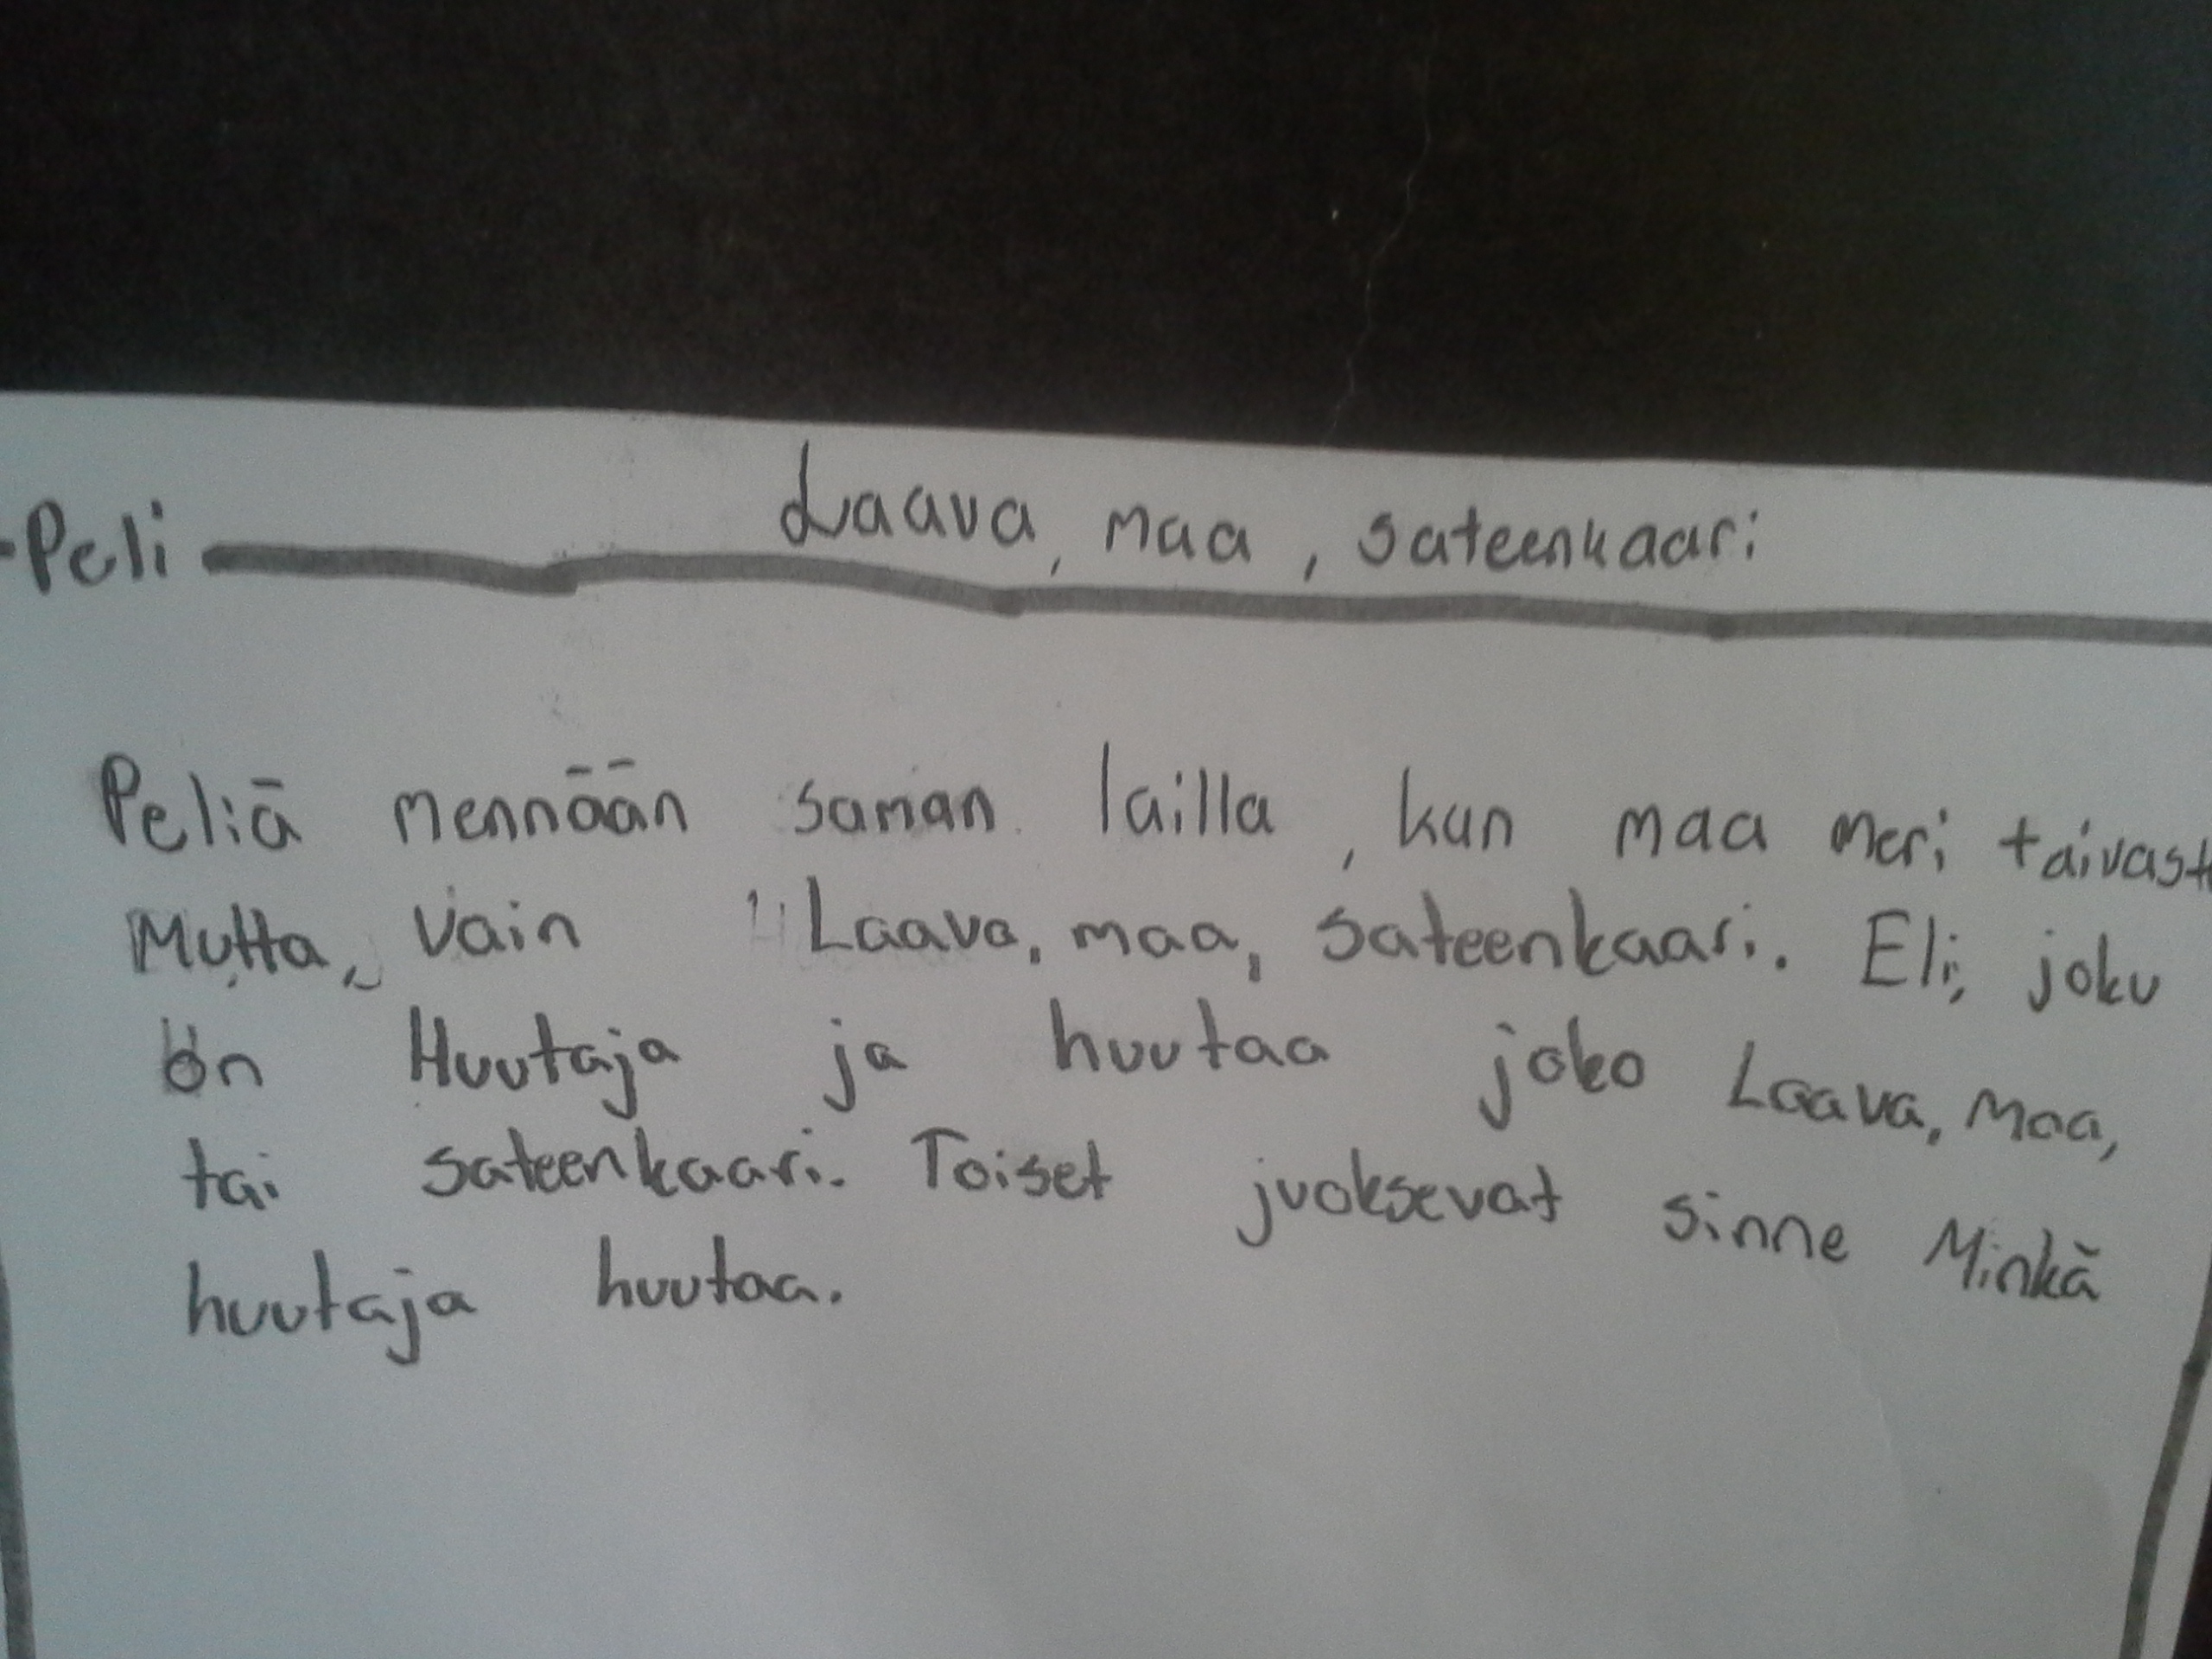 -Peli
Laava, maa, sateenkaari
Peliä mennään saman lailla, kun maa meri taivast
Mutta, vain "Laava, maa, sateenkaari. Eli, joku
on Huutaja ja huutaa joko Laava, maa,
tai sateenkaari. Toiset juoksevat sinne Minkä
huutaja huutaa.